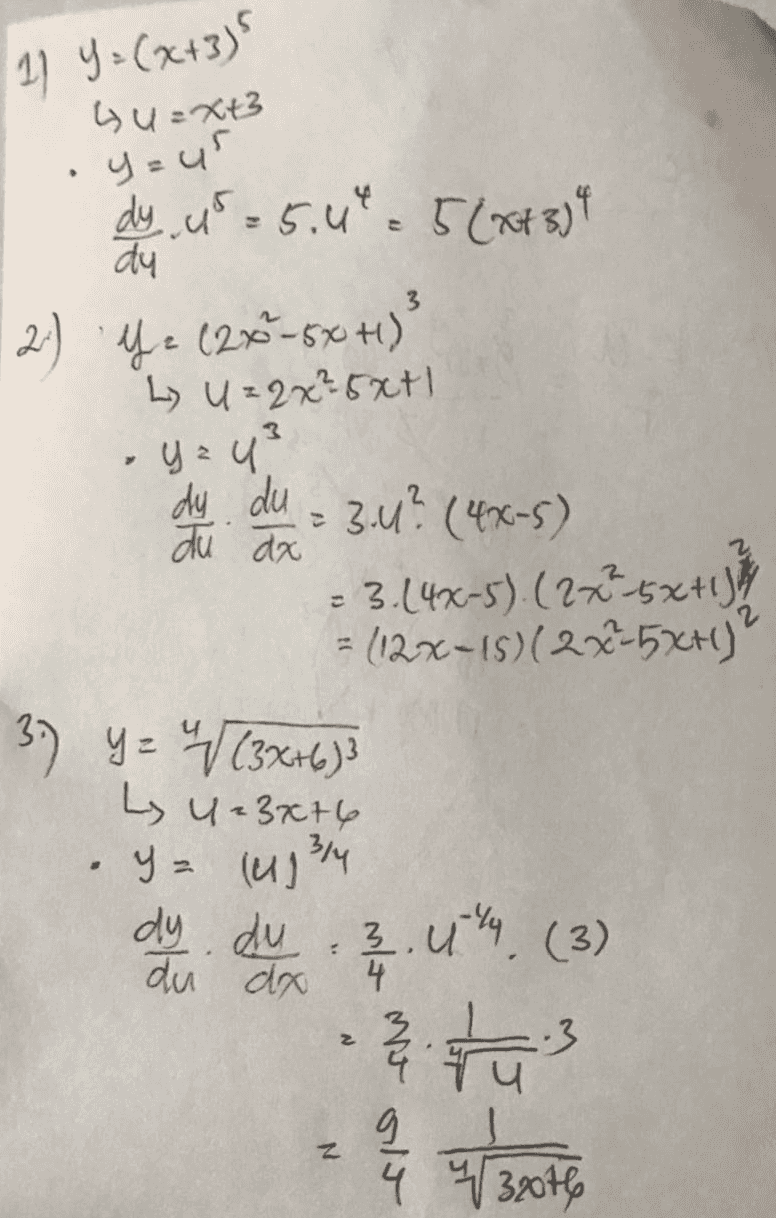 1) y = (x+3)⁵
↳ u = x+3
• y = u⁵
dy/du . u⁵ = 5.u⁴ = 5(x+3)⁴
2.) y = (2x²-5x+1)³
↳ u = 2x²-5x+1
• y = u³
dy/du . du/dx = 3.u². (4x-5)
= 3.(4x-5).(2x²-5x+1)²
= (12x-15)(2x²-5x+1)²
3.) y = ⁴√(3x+6)³
↳ u = 3x+6
• y = (u)^3/4
dy/du . du/dx = 3/4 . u^-1/4 . (3)
= 3/4 . 1/⁴√u . 3
= 9/4 1/⁴√3x+6